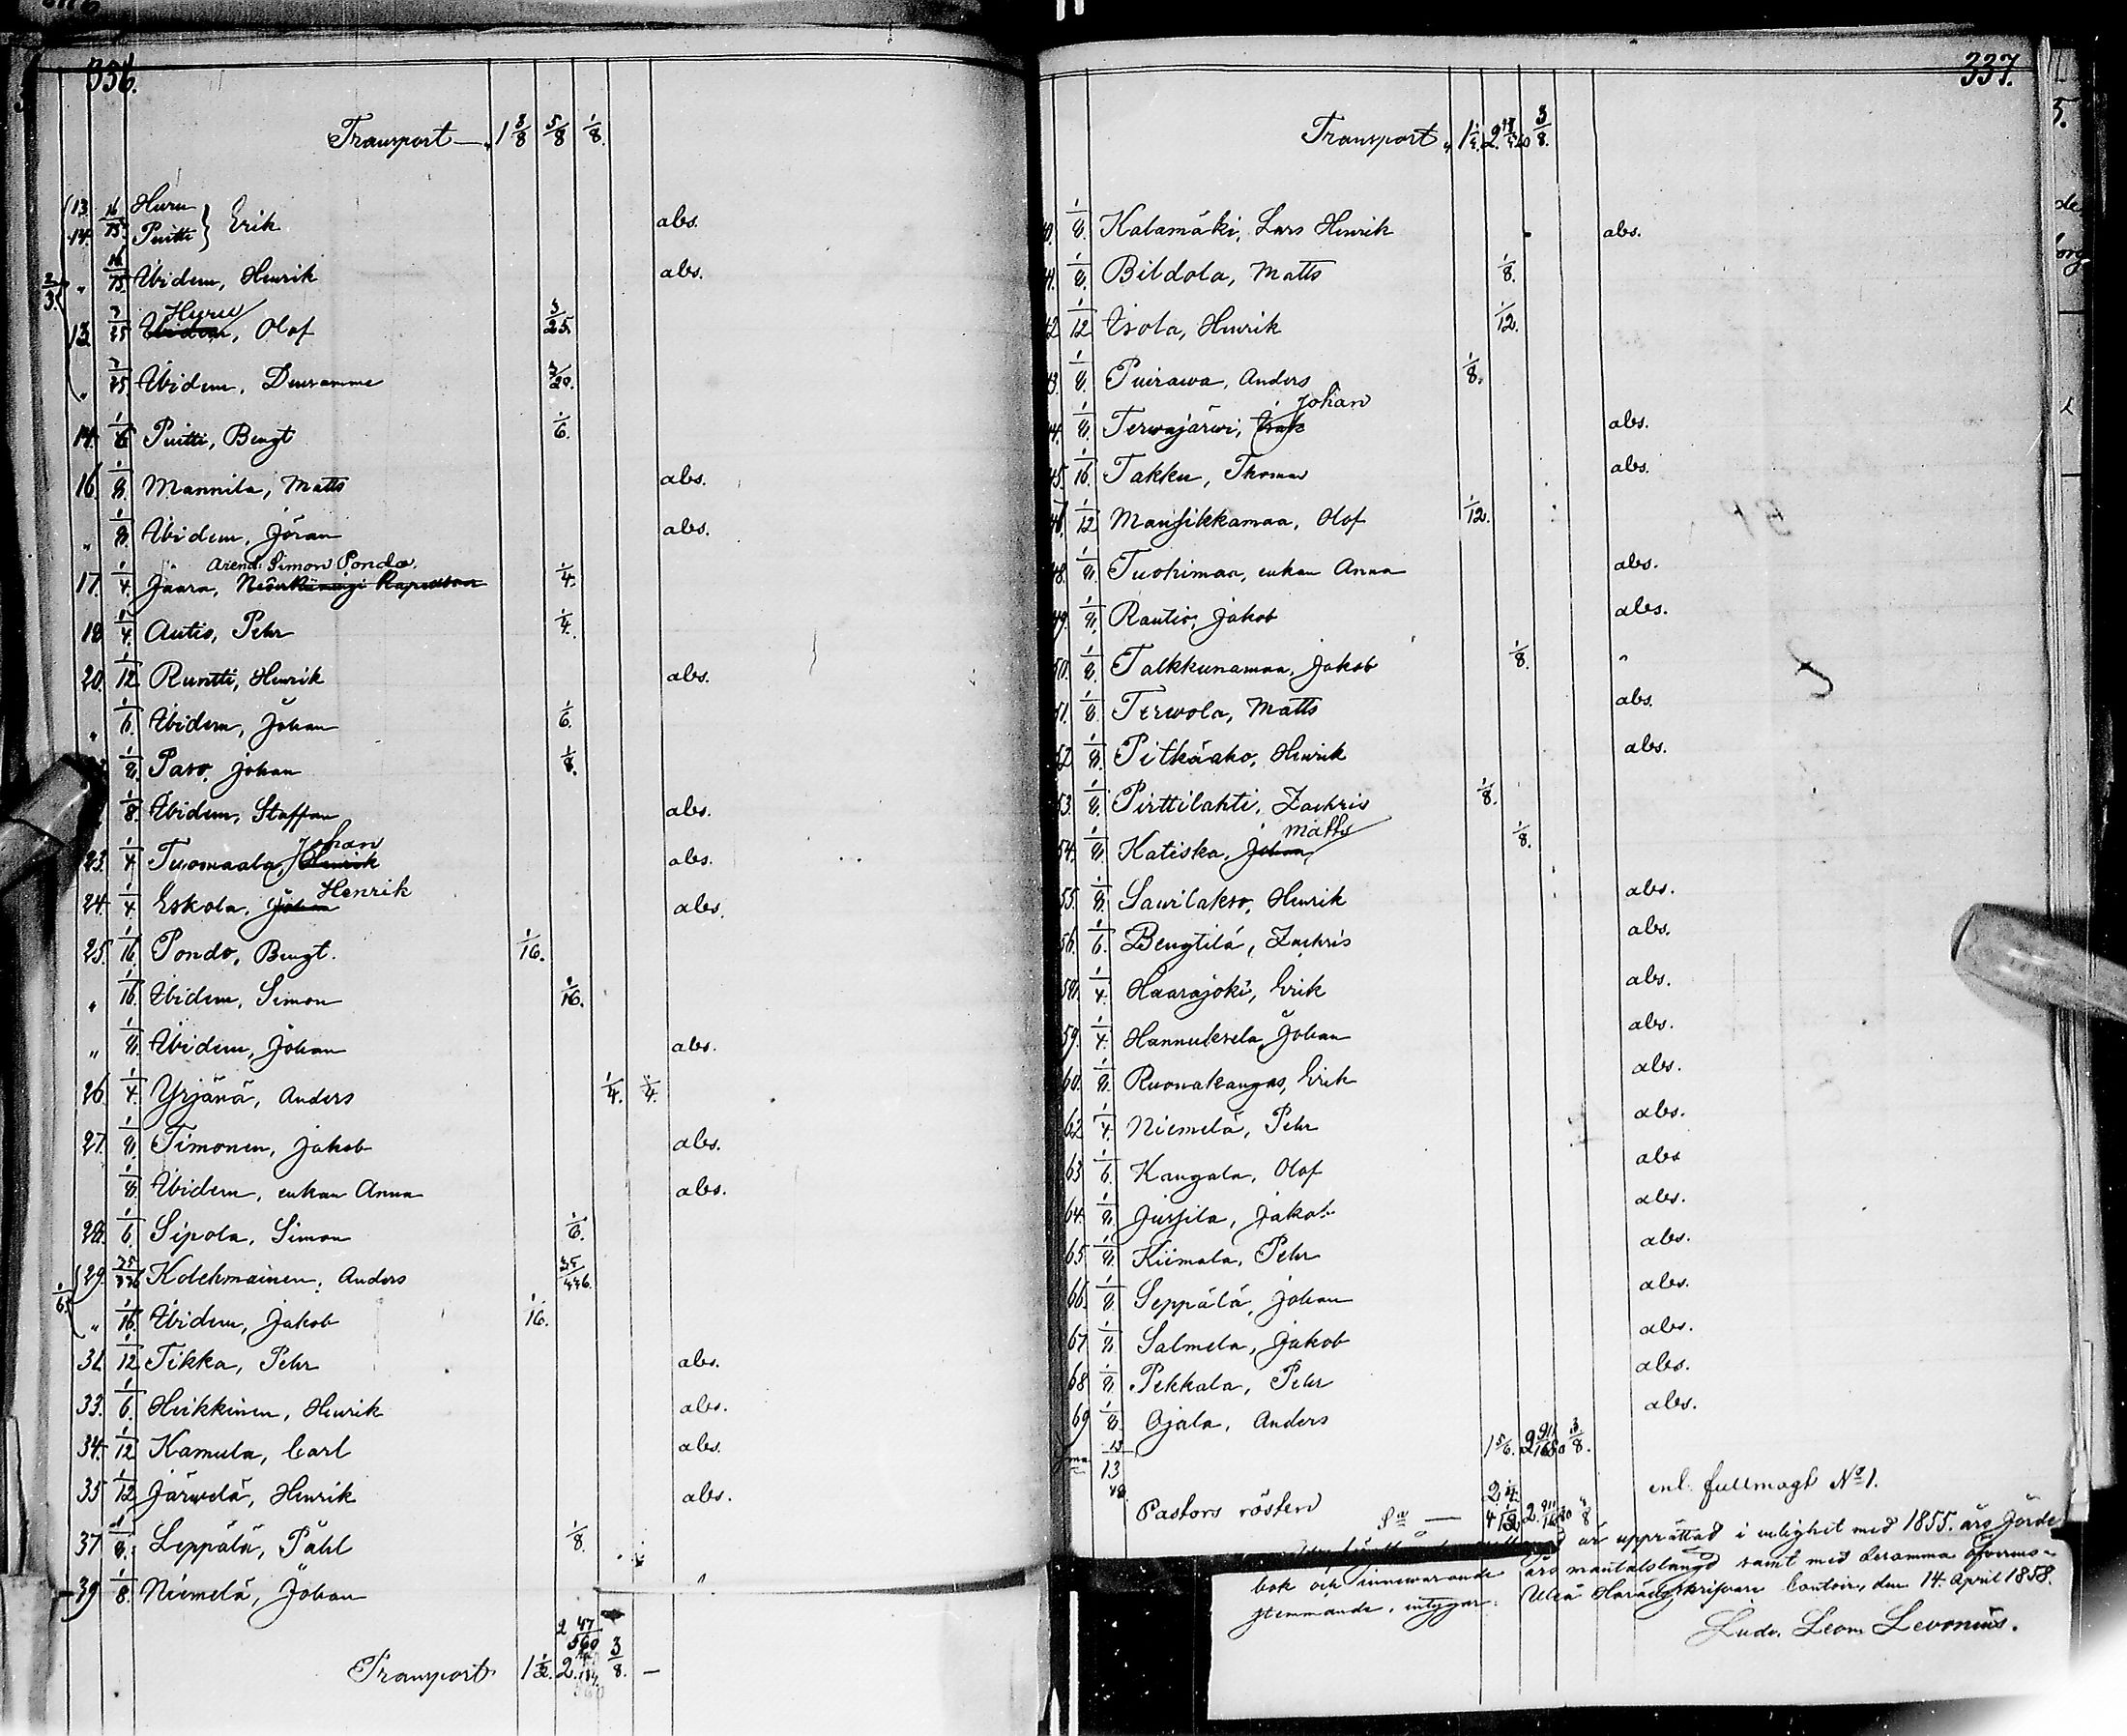 336.
Transport 1 3/8 5/8 1/8.
13. 14. 16/75 Huru Puitti } Erik abs.
2/3 " 16/75 Ibidem, Henrik abs.
13 3/25 Huru Ibidem, Olof 3/25.
" Ibidem, Densamme 3/20.
14. 1/6 Puitti, Bengt 1/6.
16. 1/8. Mannila, Matts abs.
" 1/8. Ibidem, Jöran abs.
Arend: Simon Pondo
17. 1/4. Jaara, 1/4.
18. 1/4. Autio, Pehr 1/4.
20. 1/12 Runtti, Henrik abs.
" 1/6. Ibidem, Johan 1/6.
1/8. Paso, Johan 1/8.
1/8. Ibidem, Staffan abs.
Johan
23. 1/4 Tuomaala, Henrik abs.
24. 1/4 Eskola, Johan Henrik abs.
25. 1/16. Pondo, Bengt. 1/16.
" 1/16. Ibidem, Simon 1/16.
" 1/8. Ibidem, Johan abs.
26. 1/4. Yrjänä, Anders 1/4. 1/4.
27. 1/8. Timonen, Jakob abs.
1/8. Ibidem, enkan Anna abs.
28. 1/6. Sipola, Simon 1/6.
29. Kolehmainen, Anders
" 1/16. Ibidem, Jakob 1/16.
31. 1/12 Tikka, Pehr abs.
33. 1/6. Heikkinen, Henrik abs.
34. 1/12 Kamula, Carl abs.
35 1/12 Järvelä, Henrik abs.
37 1/8. Leppälä, Påhl 1/8.
39 1/8. Niemelä, Johan "
2 47/560
Transport 1 1/2. 2. 3/8. —
337.
Transport 1 1/2. 2. 3/8.
1/8. Kalamäki, Lars Henrik abs.
41. 1/8. Bildola, Matts 1/8.
42 1/12 Isola, Henrik 1/12.
43. 1/8. Puirawa, Anders 1/8.
Johan
44. 1/8. Terwajärwi, abs.
45. 1/16. Takku, Thomas abs.
46. 1/12 Mansikkamaa, Olof 1/12.
48. 1/8. Tuohimaa, enkan Anna abs.
49. 1/8. Rautio, Jakob abs.
50. 1/8. Talkkunamaa, Jakob 1/8. "
51. 1/8. Terwola, Matts abs.
52 1/8. Pitkäaho, Henrik abs.
53. 1/8. Pirttilahti, Zachris 1/8.
Matts
54. 1/8. Katiska, Johan 1/8.
55. 1/8. Saurilakso, Henrik abs.
56. 1/6. Bengtilä, Zachris abs.
58. 1/4. Haarajoki, Erik abs.
59. 1/4. Hannuksela, Johan abs.
60. 1/8. Ruonakangas, Erik abs.
62 1/4. Niemelä, Pehr abs.
63 1/6. Kangala, Olof abs
64. 1/8. Jussila, Jakob abs.
65 1/8. Kiimala, Pehr abs.
66. 1/8. Seppälä, Johan abs.
67 1/8. Salmela, Jakob abs.
68 1/8. Pekkala, Pehr abs.
69 1/8. Ojala, Anders abs.
1 5/6. 2 911/1680 3/8.
Pastors rösten enl. fullmagt No 1.
Sa —
är upprättad i enlighet med 1855. års Jorde
bok och innewarande års mantalslängd samt med desamma öfverens-
stemmande, intygar. Uleå Häradsskrifvare Contoir, den 14. April 1858.
Ludv. Leon. Levonius.